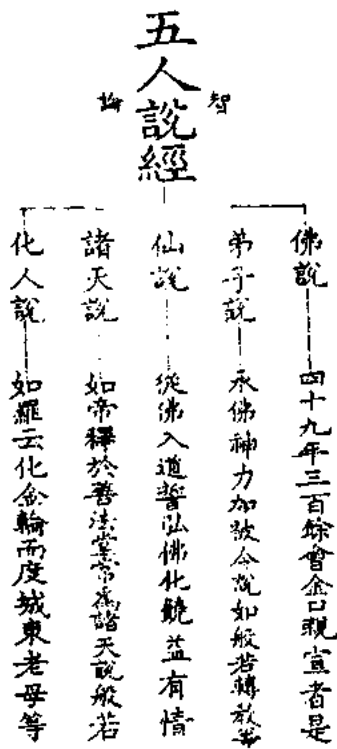 五人說經
智論
佛說
四十九年三百餘會金口親宣者是
弟子說
承佛神力加被令說如般若轉教等
仙說
從佛入道誓弘佛化饒益有情
諸天說
如帝釋於善法堂常為諸天說般若
化人說
如羅云化金輪而度城東老母等